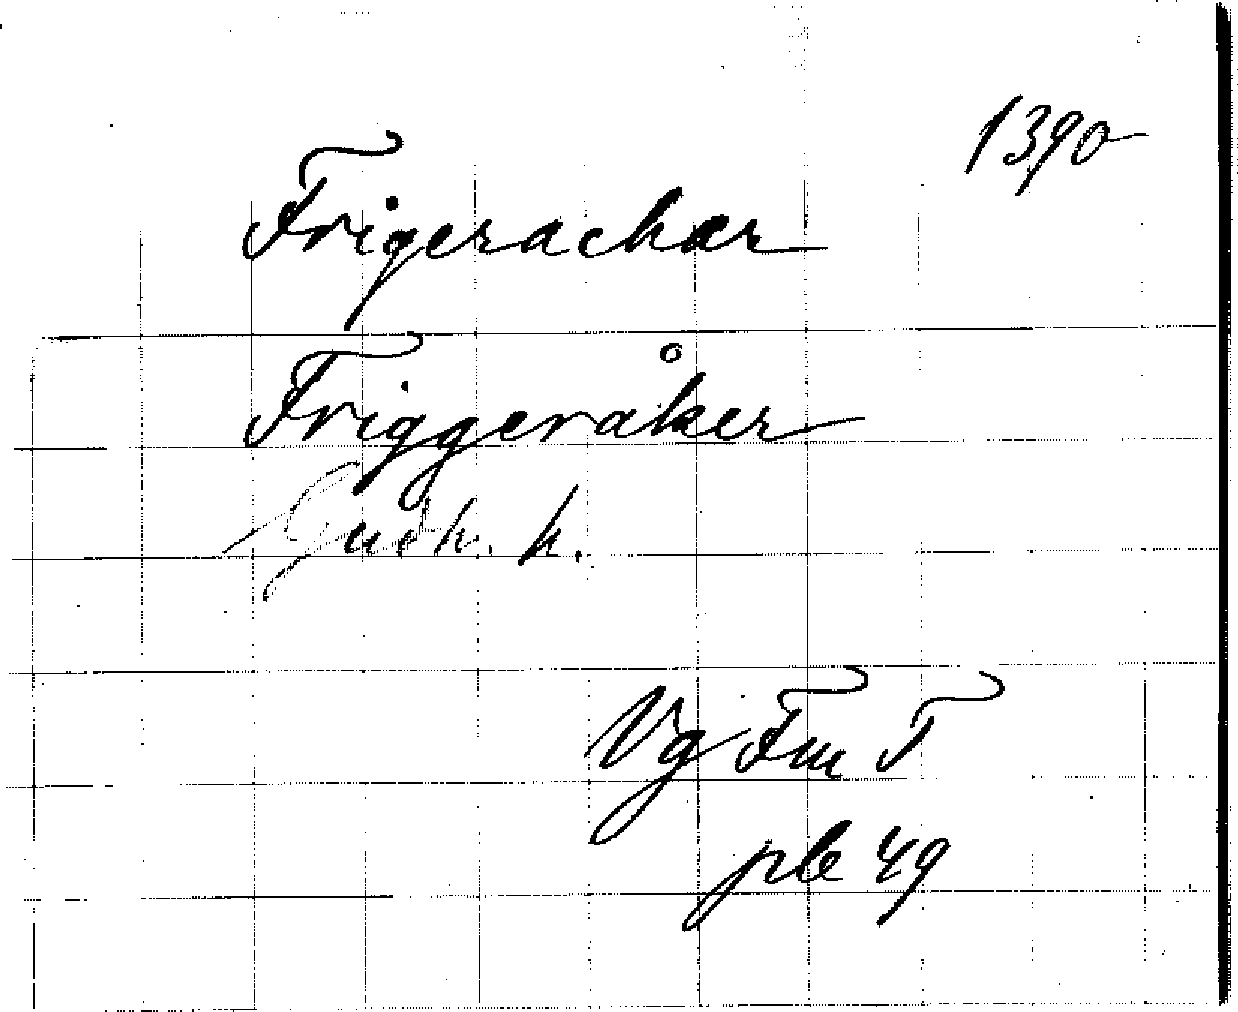 1390
Frigerachær
Friggeråker
Gudh. h.
Vg Fm T
plc 49